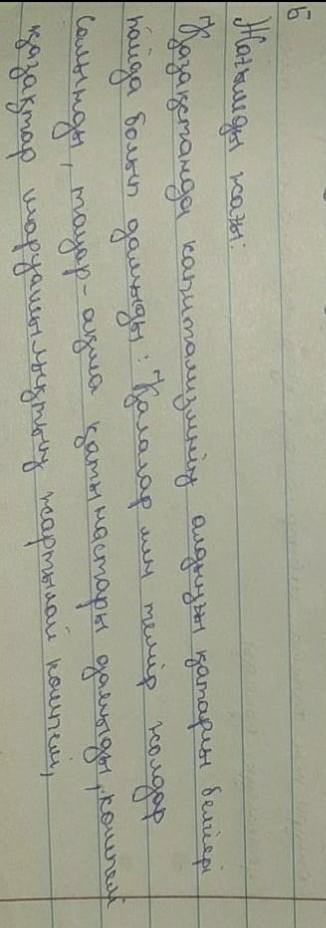 Б
Жағымды жағы:
Қазақстанда капитализмнің алдыңғы қатарлы белгілері
пайда болып дамыды: Қалалар мен темір жолдар
салынды, тауар-ақша қатынастары дамыды, көшпелі
қазақтар шаруашылықтың жартылай көшпелі,